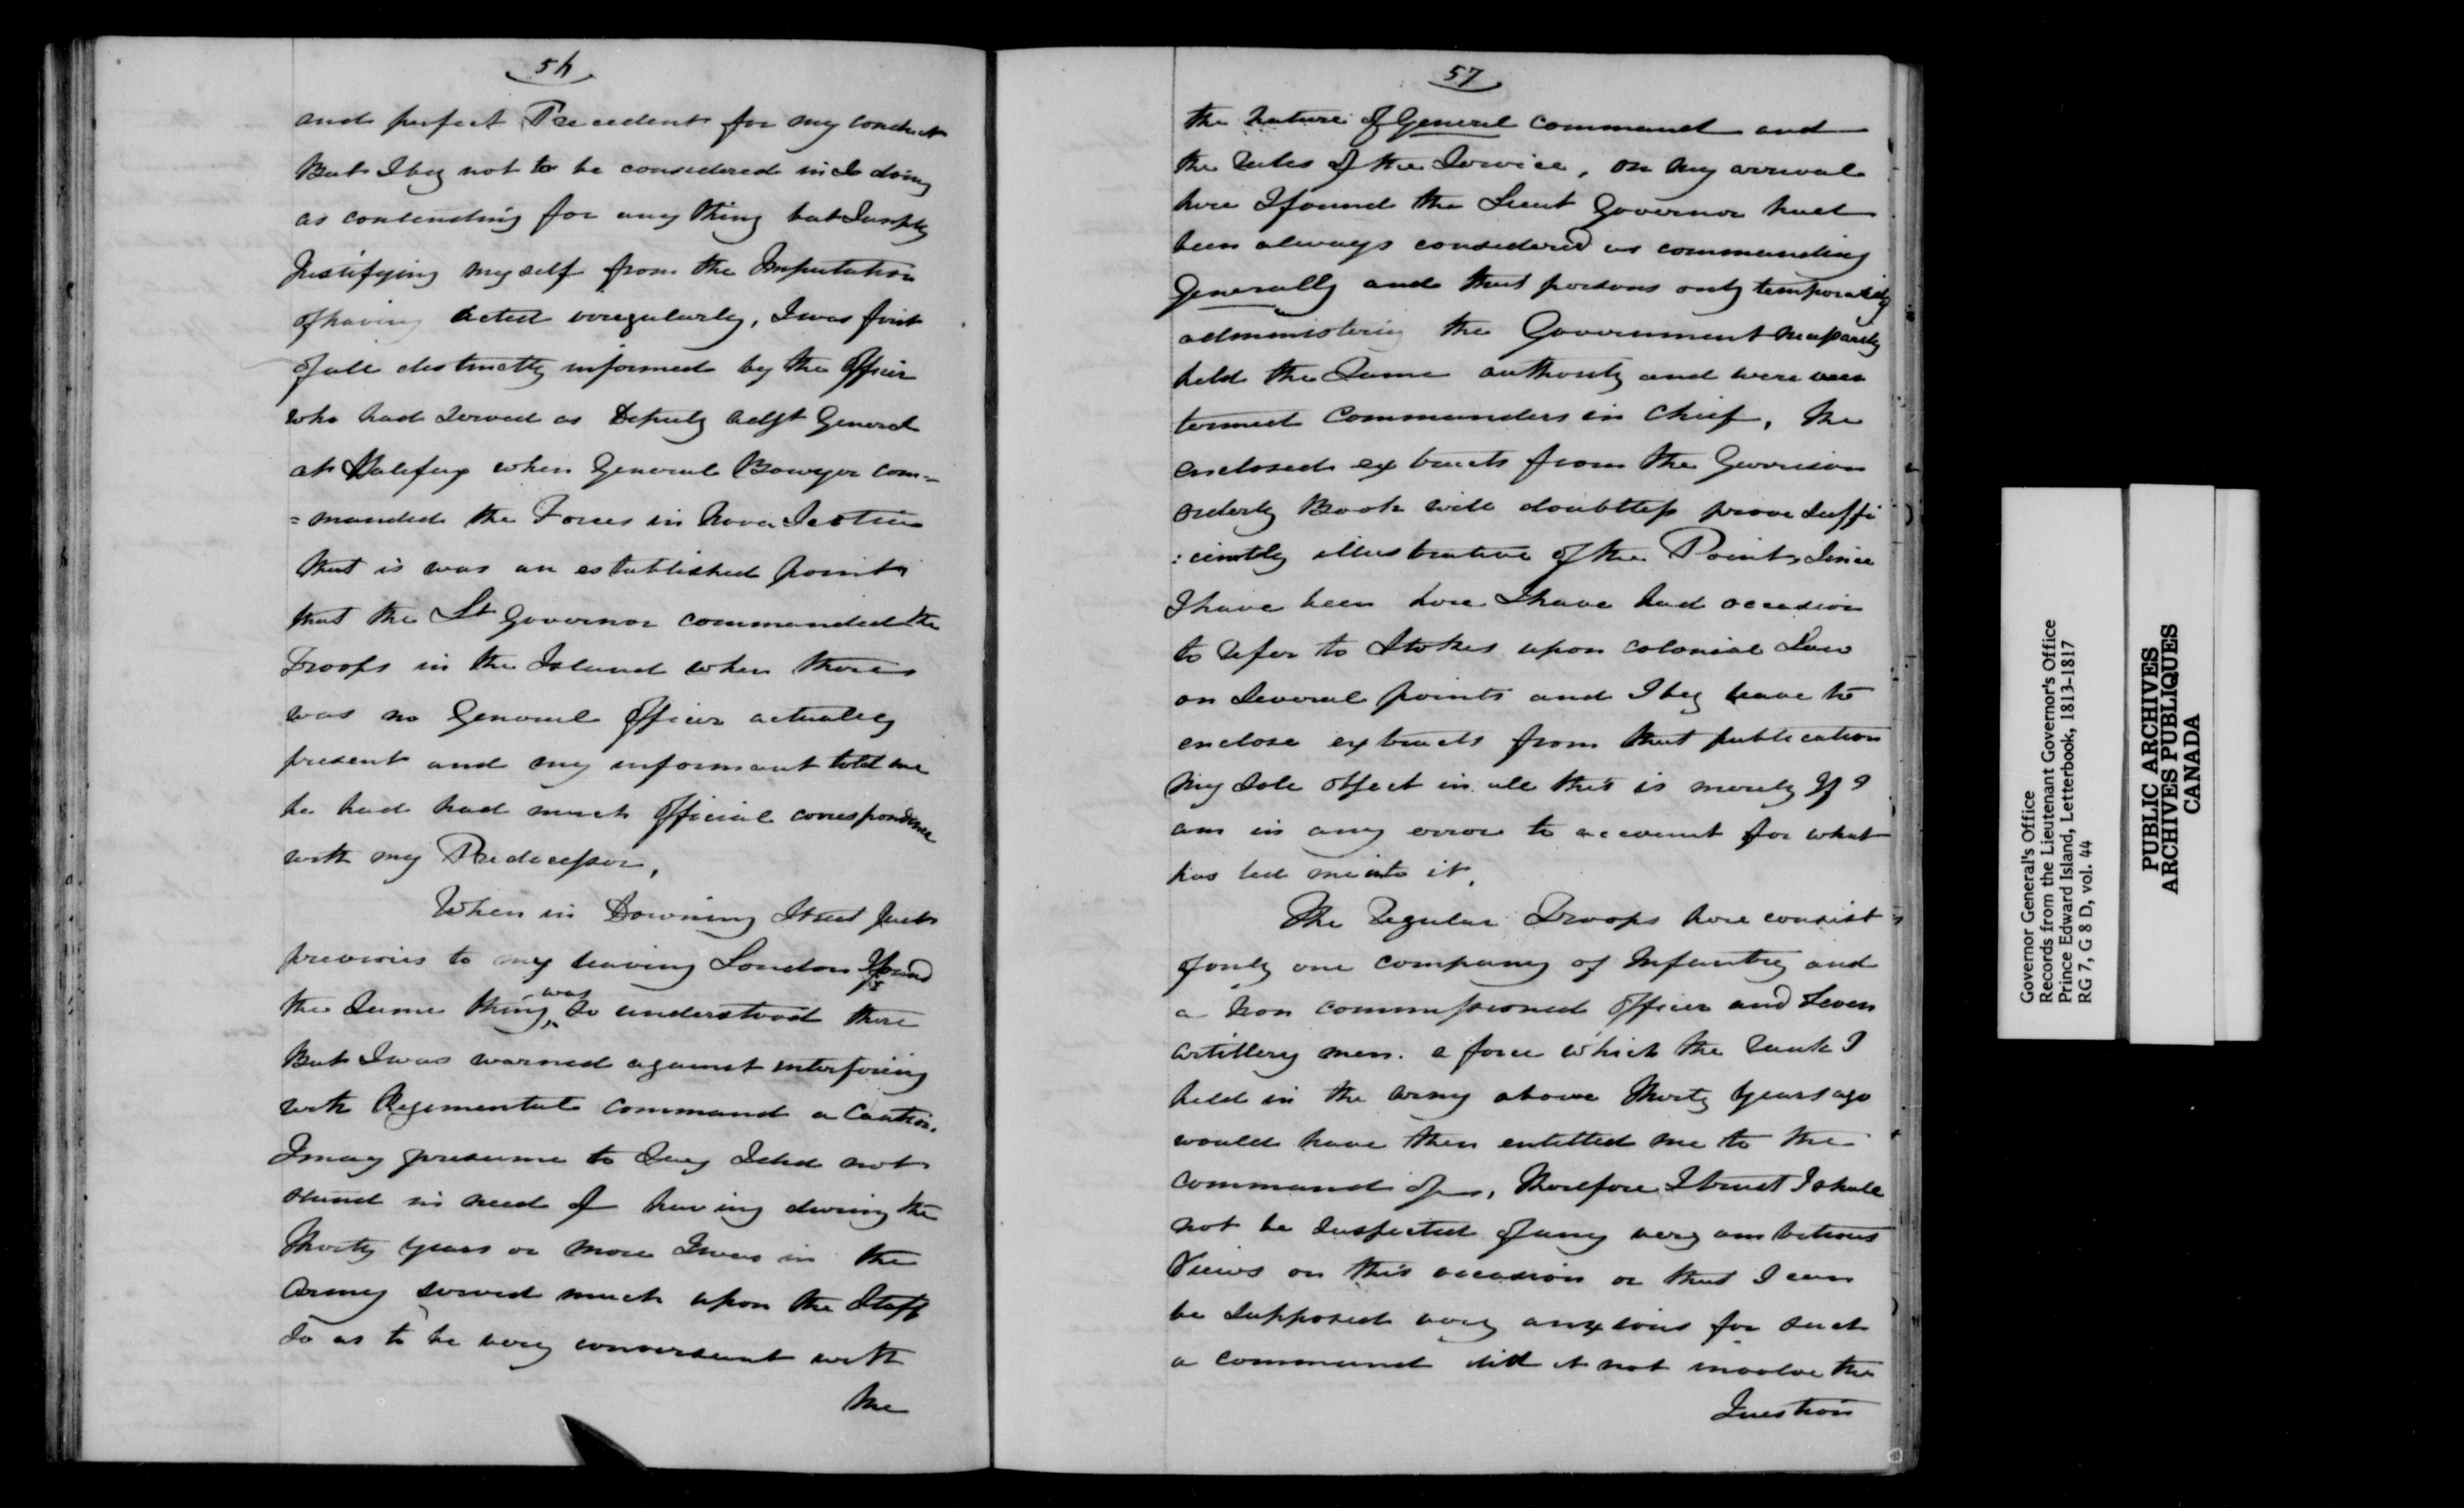 56
and perfect Precedent for my conduct
But I beg not to be considered in So doing
as contending for any thing but Simply
Justifying myself from the Imputation
of having acted irregularly, I was first
of all distinctly informed by the Officer
who had Served as Deputy Adjt General
at Halifax when General Bowyer com-
=manded the Forces in Nova Scotia
that is was an established point
that the Lt Governor commanded the
Troops in the Island when there
was no General Officer actually
present and my informant told me
he had had much Official correspondence
with my Predecessor,
When in Downing Street Just
previous to my leaving London I found
the Same thing was So understood there
But I was warned against interfering
with Regimental Command a Caution
I may presume to Say I did not
stand in need of having during the
thirty years or more I was in the
Army served much upon the Staff
So as to be very conversant with
the
57
the Nature of General Command and
the Rules of the Service, on my arrival
here I found the Lieut Governor had
been always considered as commanding
Generally and that persons only temporarily
administering the Government necessarily
held the Same authority and were even
termed Commanders in Chief, the
enclosed extracts from the Garrison
orderly Book will doubtless prove Suffi
:ciently illustrative of the Point, Since
I have been here I have had occasion
to refer to Stokes upon Colonial Law
on Several points and I beg leave to
enclose extracts from that publication
My Sole object in all this is merely If I
am in any error to account for what
has led me into it,
The Regular Troops here consist
of only one company of Infantry and
a Non commissioned Officer and Seven
Artillery men. a force which the Rank I
held in the Army above thirty Years ago
would have then entitled me to the
command of, therefore I trust I shall
not be Suspected of any very ambitious
Views on this occasion or that I can
be Supposed very anxious for Such
a command did it not involve the
Question
Governor General's Office
Records from the Lieutenant Governor's Office
Prince Edward Island, Letterbook, 1813-1817
RG 7, G 8 D, vol. 44
PUBLIC ARCHIVES
ARCHIVES PUBLIQUES
CANADA